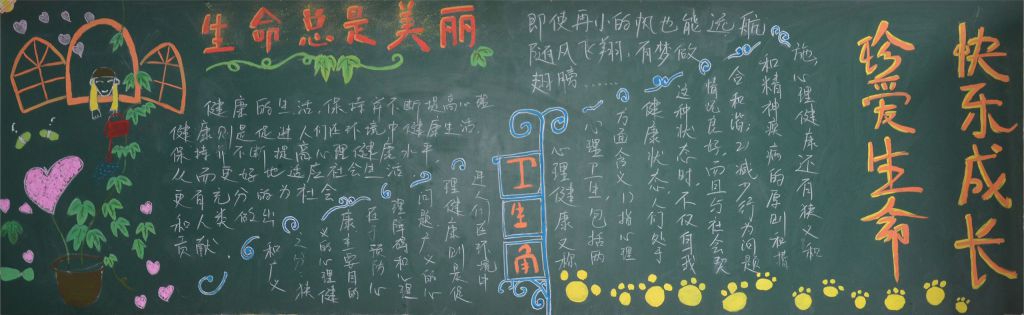 生命总是美丽
即使再小的帆也能远航
随风飞翔,有梦做
翅膀……
健康的生活,保持并不断提高心理
健康则是促进人们在环境中健康生活,
保持并不断提高心理健康水平,
从而更好地适应社会生活,
更有充分的为社会
和人类的出
贡献.
卫生角
心理健康又称
心理卫生,包括两
方面含义:(1)指心理
健康状态,人们处于
这种状态时,不仅自我
情况良好,而且与社会契
合和谐;(2)减少行为问题
和精神疾病的原则和措
施,心理健康还有狭义和
广义
之分:狭
义的心理健
康主要目的
在于预防心
理障碍和心理
问题,广义的心
理健康则是促
进人们在环境中
珍爱生命
快乐成长